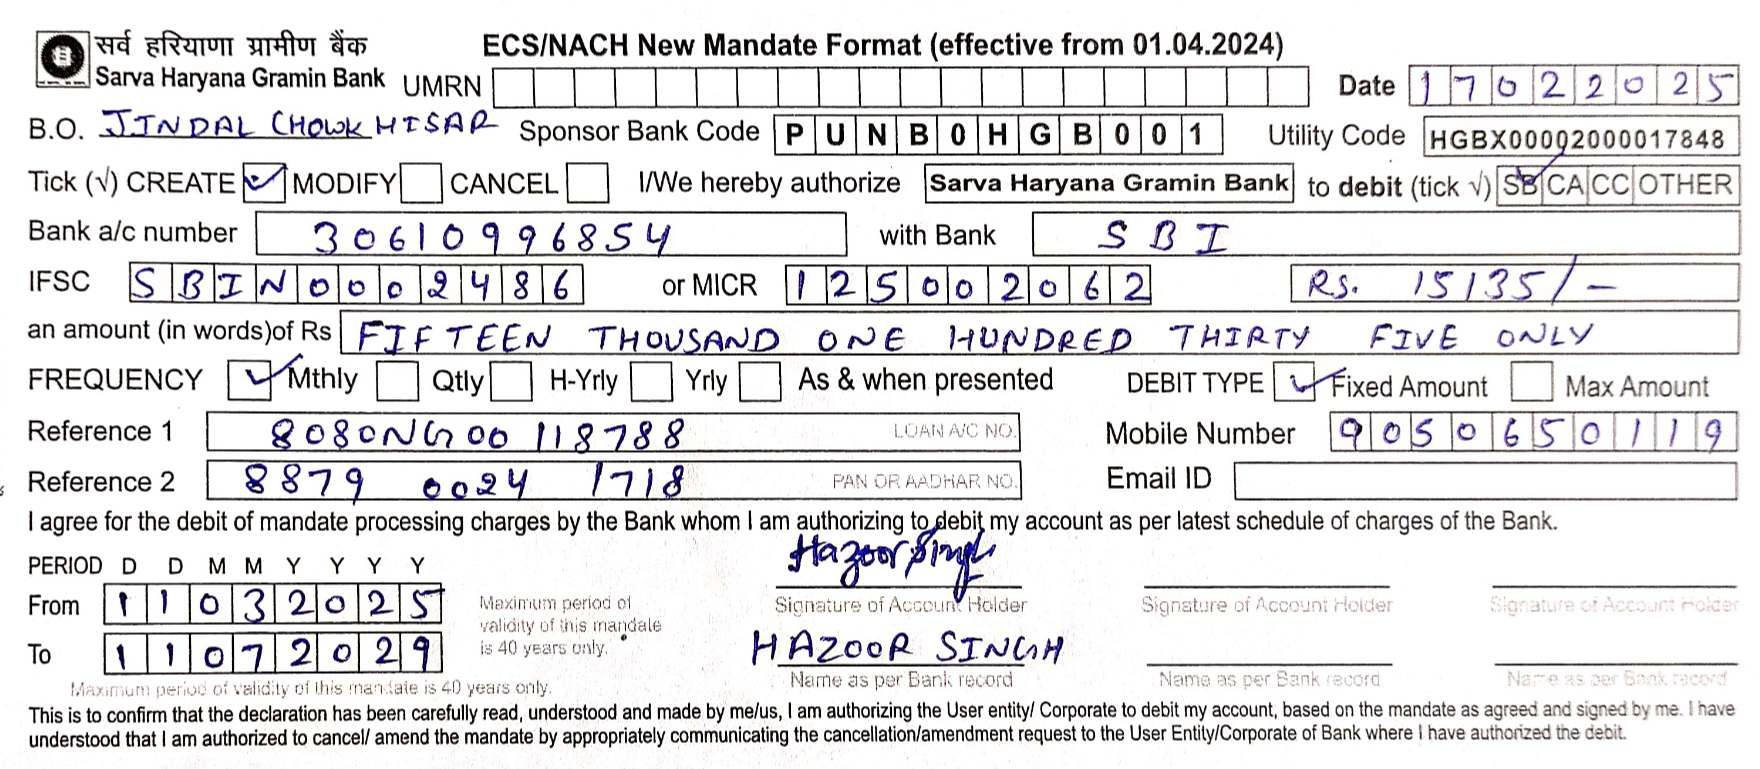 सर्व हरियाणा ग्रामीण बैंक
Sarva Haryana Gramin Bank
ECS/NACH New Mandate Format (effective from 01.04.2024)
UMRN Date 17022025
B.O. JINDAL CHOWK HISAR Sponsor Bank Code PUNB0HGB001 Utility Code HGBX00002000017848
Tick (√) CREATE ✓ MODIFY CANCEL I/We hereby authorize Sarva Haryana Gramin Bank to debit (tick √) SB ✓ CA CC OTHER
Bank a/c number 30610996854 with Bank SBI
IFSC SBIN0002486 or MICR 125002062 Rs. 15135/-
an amount (in words)of Rs FIFTEEN THOUSAND ONE HUNDRED THIRTY FIVE ONLY
FREQUENCY ✓ Mthly Qtly H-Yrly Yrly As & when presented DEBIT TYPE ✓ Fixed Amount Max Amount
Reference 1 8080NG00118788 LOAN A/C NO. Mobile Number 9050650119
Reference 2 8879 0024 1718 PAN OR AADHAR NO. Email ID
I agree for the debit of mandate processing charges by the Bank whom I am authorizing to debit my account as per latest schedule of charges of the Bank.
PERIOD D D M M Y Y Y Y
From 11032025
To 11072029
Maximum period of validity of this mandate is 40 years only.
Maximum period of
validity of this mandale
is 40 years only.
Hazoor Singh
Signature of Account Holder Signature of Account Holder Signature of Account Holder
HAZOOR SINGH
Name as per Bank record Name as per Bank record Name as per Bank record
This is to confirm that the declaration has been carefully read, understood and made by me/us, I am authorizing the User entity/ Corporate to debit my account, based on the mandate as agreed and signed by me. I have
understood that I am authorized to cancel/ amend the mandate by appropriately communicating the cancellation/amendment request to the User Entity/Corporate of Bank where I have authorized the debit.